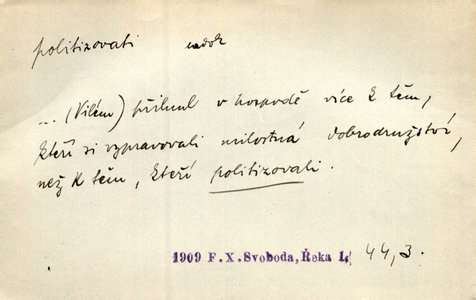 politizovati nedok
... (Vilém) přilnul v hospodě více k těm,
kteří si vypravovali milostná dobrodružství,
než k těm, kteří politizovali.
1909 F.X.Svoboda, Řeka I, 44, 3.